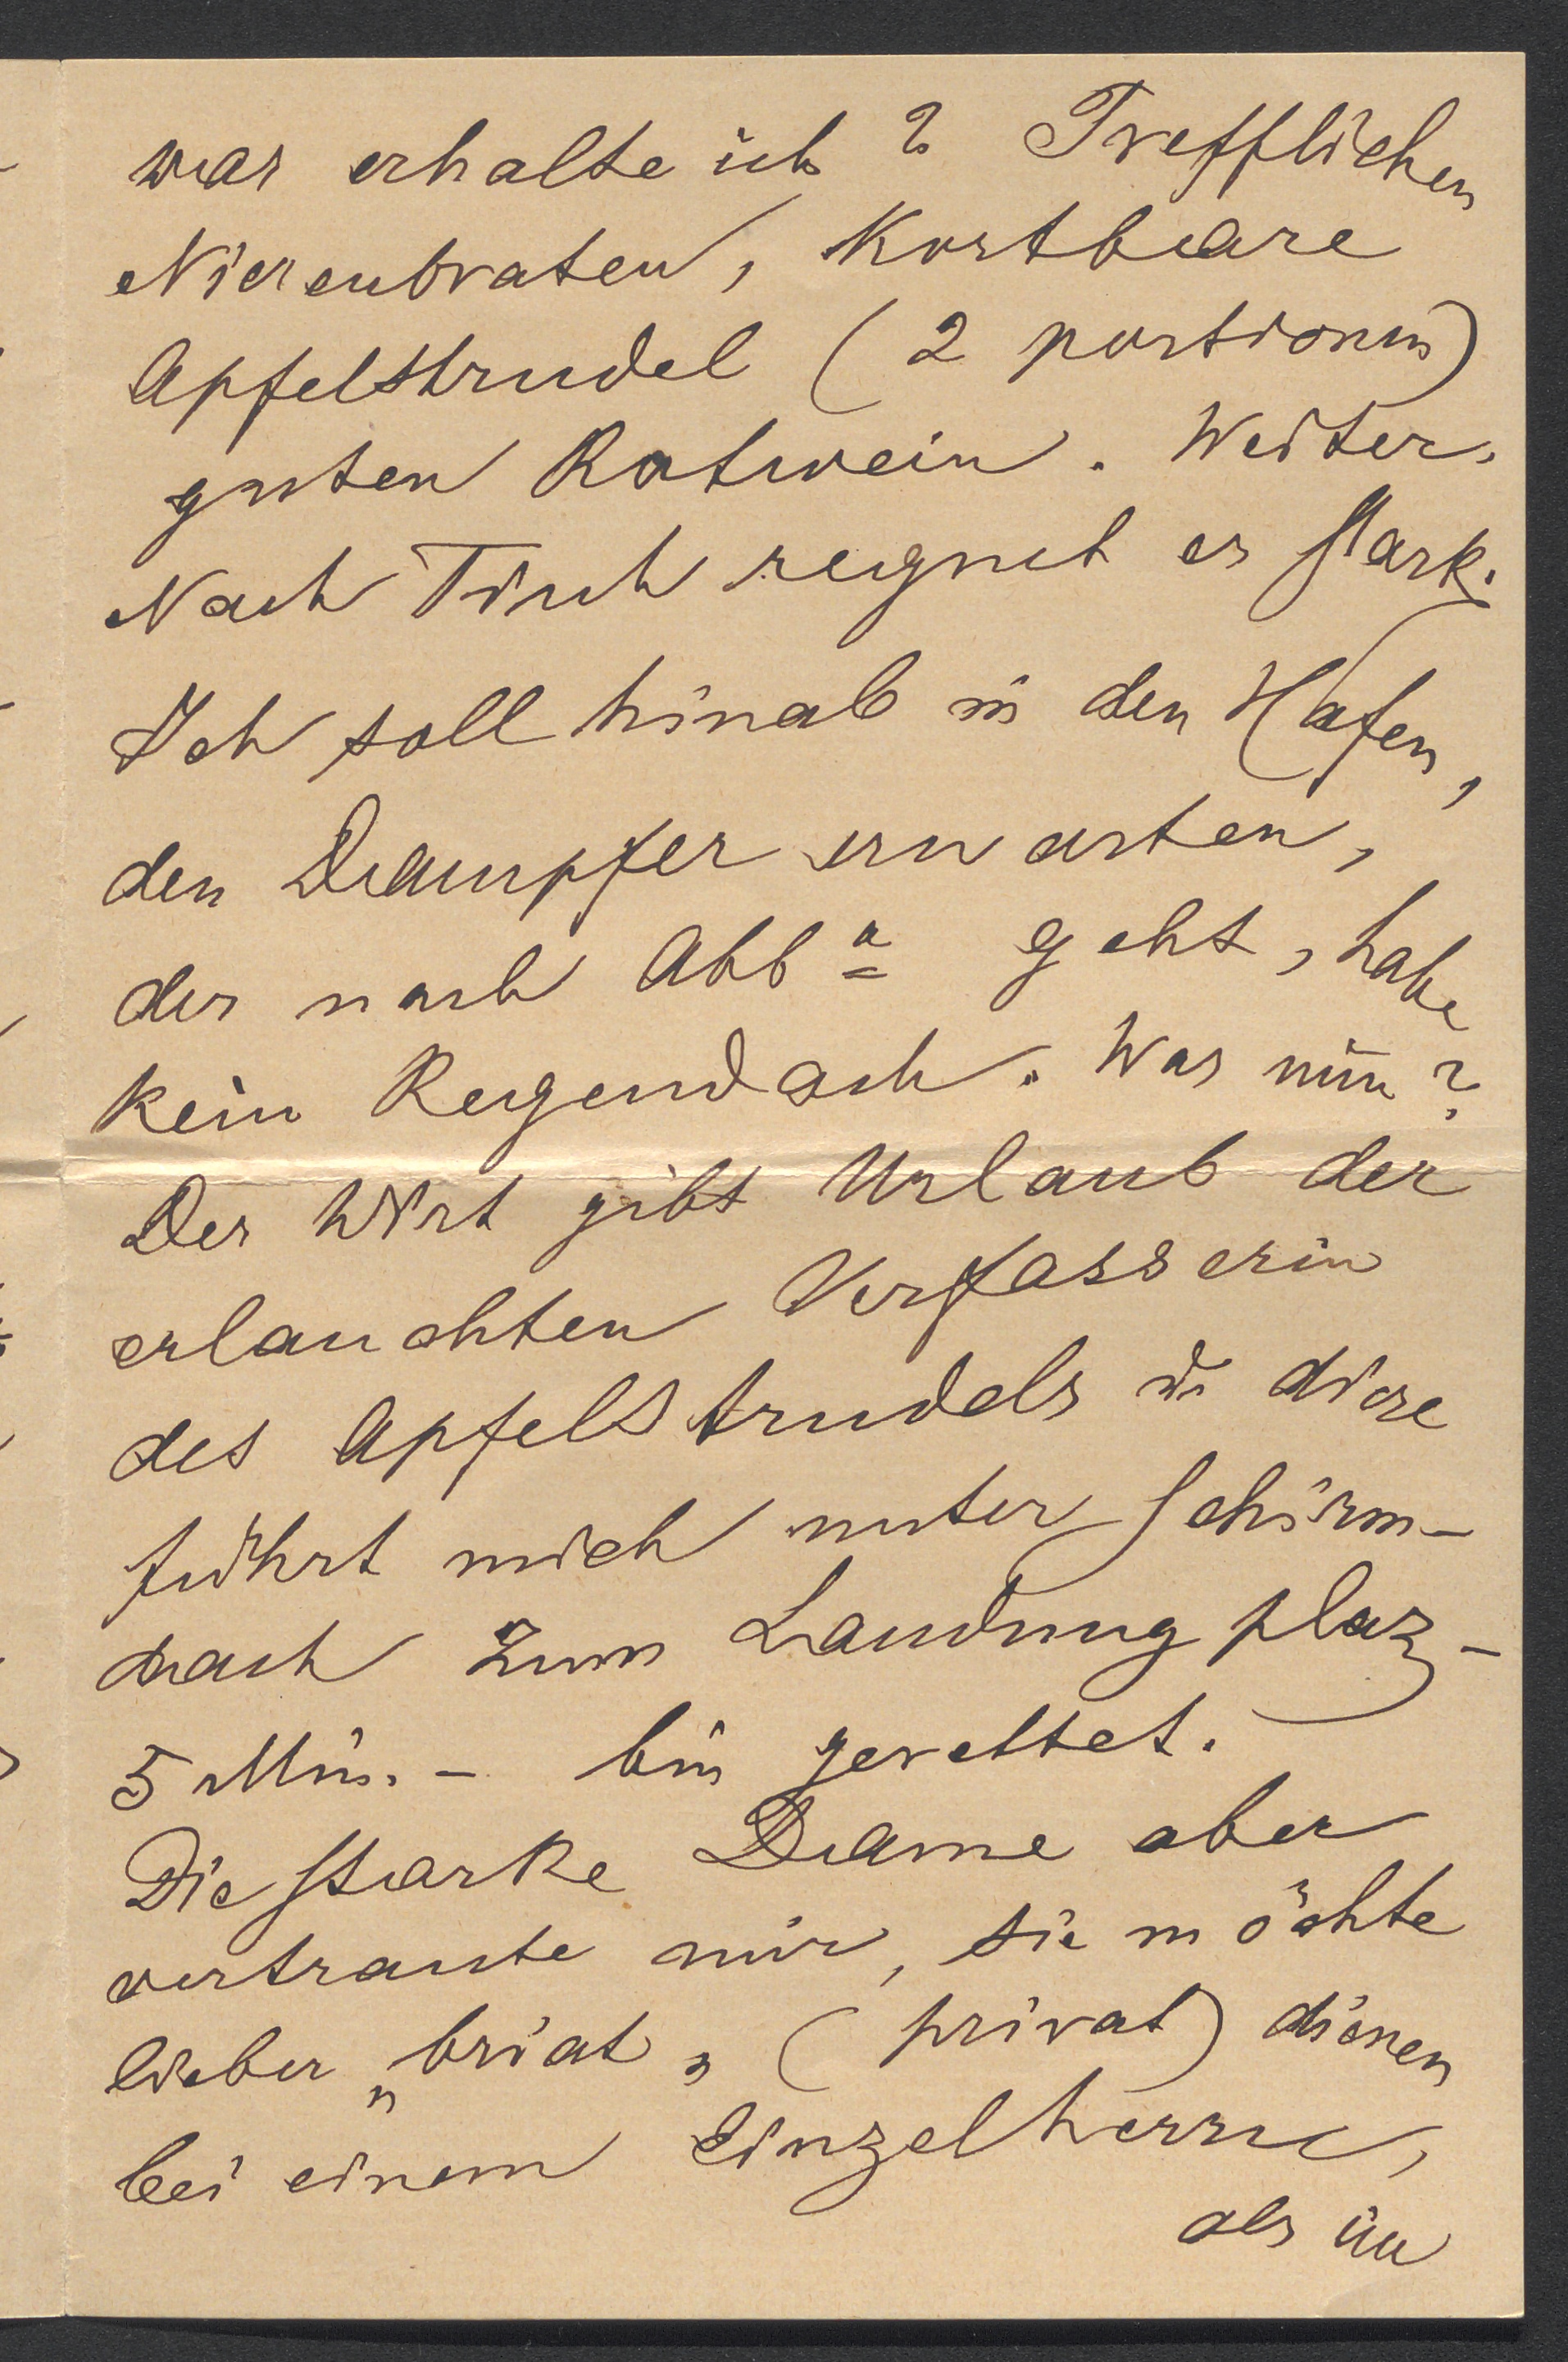 was erhalte ich? Trefflichen
Nierenbraten, Kostbare
Apfelstrudel (2 portionen)
guten Rotwein. Weiter.
Nach Tisch regnet es stark.
Ich soll hinab in den Hafen,
den Dampfer erwarten,
der nach Abb<sup>a</sup> geht, habe
kein Regendach. Was nun?
Der Wirt gibt Urlaub der
erlauchten Verfasserin
des Apfelstrudels u diese
führt mich unter Schirm-
dach zum Landungplaz -
5 Min. - bin gerettet.
Die starke Dame aber
vertraute mir, sie möchte
lieber „briat„ (privat) dienen
bei einem Einzelherrn,
als im